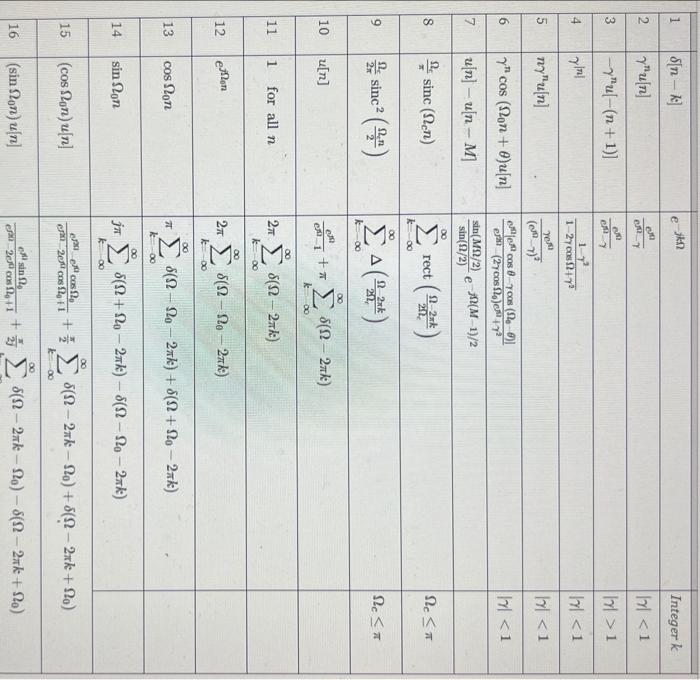 1 δ[n − k] e^{−jkΩ} Integer k
2 γ^n u[n] e^{jΩ}/(e^{jΩ}−γ) |γ| < 1
3 −γ^n u[−(n + 1)] e^{jΩ}/(e^{jΩ}−γ) |γ| > 1
4 γ^{|n|} (1−γ²)/(1−2γ cos Ω+γ²) |γ| < 1
5 nγ^n u[n] γe^{jΩ}/(e^{jΩ}−γ)² |γ| < 1
6 γ^n cos (Ω₀n + θ)u[n] e^{jΩ}[e^{jΩ} cos θ−γ cos (Ω₀−θ)]/(e^{j2Ω}−(2γ cos Ω₀)e^{jΩ}+γ²) |γ| < 1
7 u[n] − u[n − M] sin(MΩ/2)/sin(Ω/2) e^{−jΩ(M−1)/2}
8 Ω_c/π sinc (Ω_c n) ∑_{k=−∞}^{∞} rect ((Ω−2πk)/2Ω_c) Ω_c ≤ π
9 Ω_c/2π sinc² (Ω_c n/2) ∑_{k=−∞}^{∞} Δ ((Ω−2πk)/2Ω_c) Ω_c ≤ π
10 u[n] e^{jΩ}/(e^{jΩ}−1) + π ∑_{k=−∞}^{∞} δ(Ω − 2πk)
11 1 for all n 2π ∑_{k=−∞}^{∞} δ(Ω − 2πk)
12 e^{jΩ₀n} 2π ∑_{k=−∞}^{∞} δ(Ω − Ω₀ − 2πk)
13 cos Ω₀n π ∑_{k=−∞}^{∞} δ(Ω − Ω₀ − 2πk) + δ(Ω + Ω₀ − 2πk)
14 sin Ω₀n jπ ∑_{k=−∞}^{∞} δ(Ω + Ω₀ − 2πk) − δ(Ω − Ω₀ − 2πk)
15 (cos Ω₀n) u[n] (e^{j2Ω}−e^{jΩ} cos Ω₀)/(e^{j2Ω}−2e^{jΩ} cos Ω₀+1) + π/2 ∑_{k=−∞}^{∞} δ(Ω − 2πk − Ω₀) + δ(Ω − 2πk + Ω₀)
16 (sin Ω₀n) u[n] e^{jΩ} sin Ω₀/(e^{j2Ω}−2e^{jΩ} cos Ω₀+1) + π/2j ∑_{k=−∞}^{∞} δ(Ω − 2πk − Ω₀) − δ(Ω − 2πk + Ω₀)